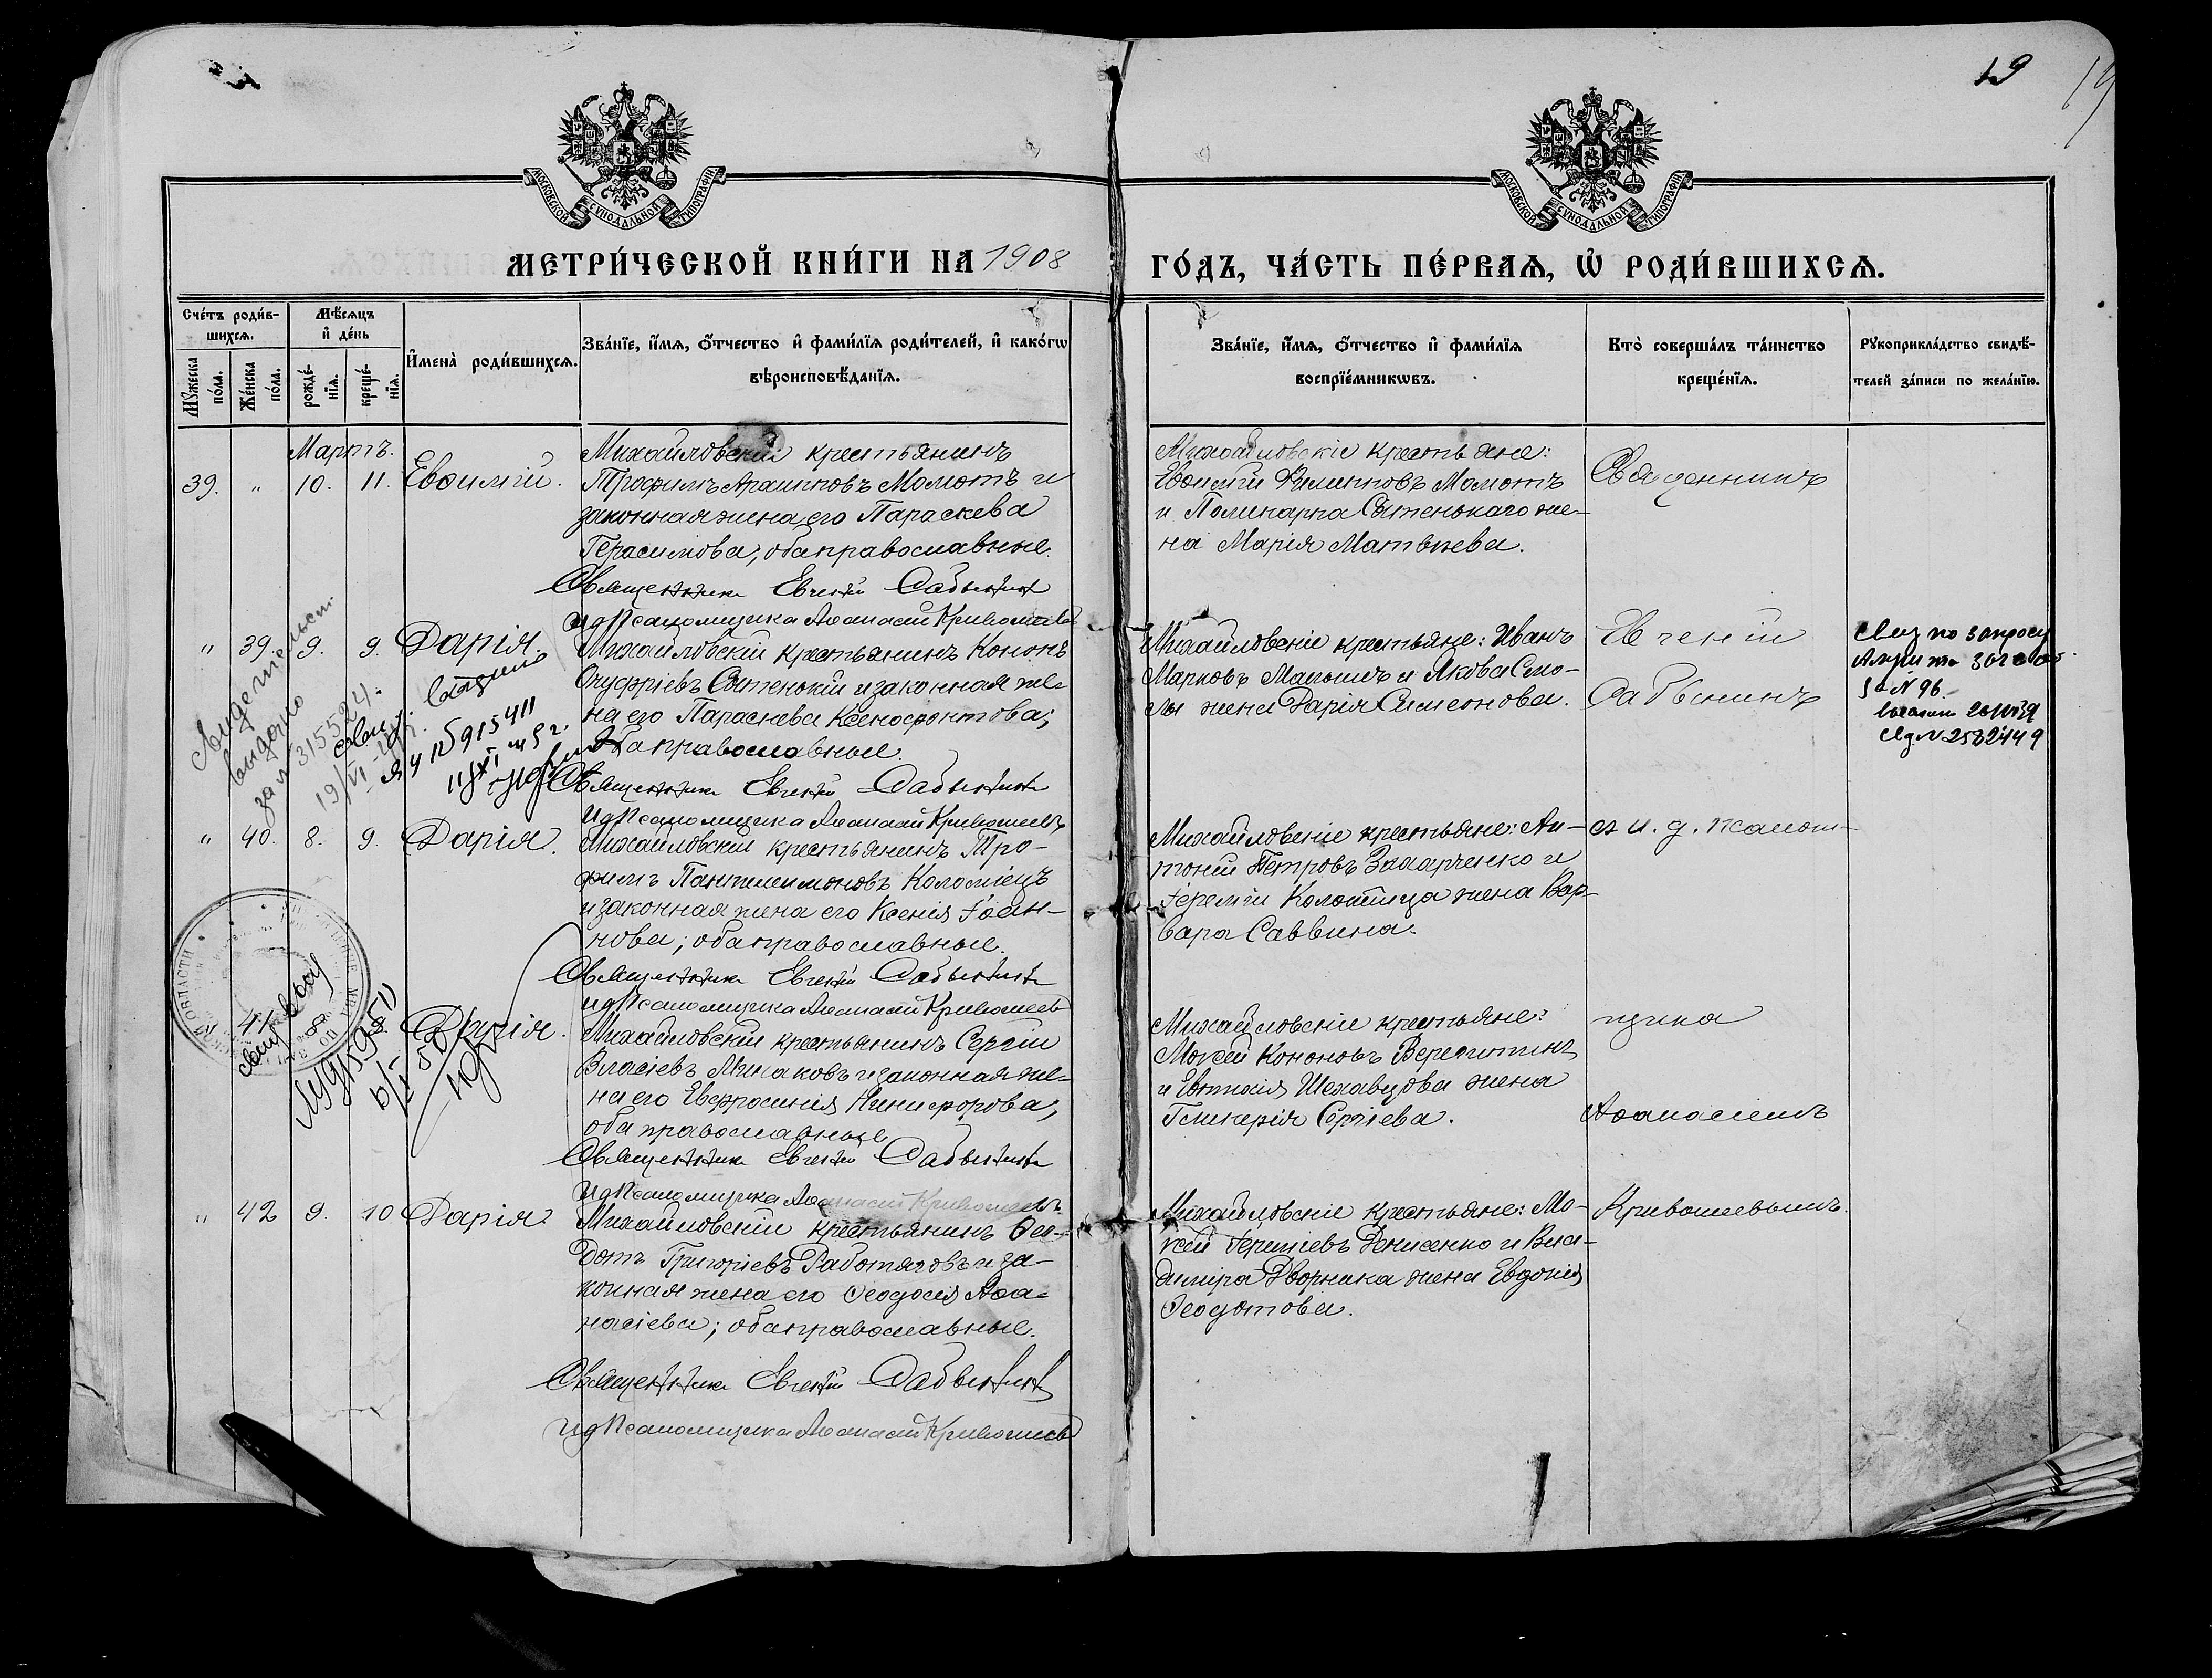 19
19
МОСКОВСКОЙ СѴНОДАЛЬНОЙ ТИПОГРАФІИ
МОСКОВСКОЙ СѴНОДАЛЬНОЙ ТИПОГРАФІИ
МЕТРИ́ЧЕСКОЙ КНИ́ГИ НА 1908
ГО́ДЪ, ЧА́СТЬ ПЕ́РВАѦ, Ѡ҆ РОДИ́ВШИХСѦ.
Сче́тъ роди́в-
шихсѧ.
Мꙋ́жеска по́ла.
Же́нска по́ла.
Мѣ́сѧцъ
и҆ де́нь
рожде́-
нїѧ.
креще́-
нїѧ.
И҆мена̀ роди́вшихсѧ.
Зва́нїе, и҆́мѧ, ѻ҆́тчество и҆ фами́лїѧ роди́телей, и҆ како́гѡ
вѣроисповѣ́данїѧ.
Зва́нїе, и҆́мѧ, ѻ҆́тчество и҆ фами́лїѧ
воспрїе́мникѡвъ.
Кто̀ соверша́лъ та́инство
креще́нїѧ.
Рꙋкоприкла́дство свидѣ́-
телей за́писи по жела́нїю.
Мартъ.
39. " 10. 11. Евѳимій.
Михайловскій крестьянинъ
Трофимъ Архипповъ Момотъ и
законная жена его Параскева
Герасимова, оба православные.
Священникъ Евгеній Сабынинъ
и д Псаломщика Аѳанасій Кривошеевъ
Михайловскіе крестьяне:
Евѳимій Филипповъ Момотъ
и Поликарпа Сытенькаго же-
на Марія Матвѣева.
Священникъ
" 39. 9. 9. Дарія.
Михайловскій крестьянинъ Кононъ
Онуфріевъ Сытенькій и законная же-
на его Параскева Ксенофонтова;
оба православные.
Священникъ Евгеній Сабынинъ
И д Псаломщика Аѳанасій Кривошеевъ
Михайловскіе крестьяне: Иванъ
Марковъ Малышъ и Якова Смо-
лы жена Дарія Симеонова.
Евгеній
Сабынинъ
Свид по запросу
№ 96.
№ 2582449
Свидетельст.
выдано
за № 315524.
19/VI-
ЯУ № 915411
" 40. 8. 9. Дарія.
Михайловскій крестьянинъ Тро-
фимъ Пантелеимоновъ Коломіецъ
и законная жена его Ксенія Іоан-
нова; оба православные.
Священникъ Евгеній Сабынинъ
и д Псаломщика Аѳанасій Кривошеевъ
Михайловскіе крестьяне: Ан-
тоній Петровъ Захарченко и
Іереміи Колотица жена Вар-
вара Саввина.
съ и. д. псалом-
41 Дарія.
Михайловскій крестьянинъ Сергій
Власіевъ Минаковъ и законная же-
на его Евфросинія Никифорова;
оба православные
Священникъ Евгеній Сабынинъ
И д Псаломщика Аѳанасій Кривошеевъ
Михайловскіе крестьяне:
Моисей Кононовъ Верепитинъ
и Евтихія Шехавцова жена
Гликерія Сергіева.
щика
Аѳанасіемъ
" 42 9. 10 Дарія.
Михайловскій крестьянинъ Ѳео-
дотъ Григоріевъ Работяговъ и за-
конная жена его Ѳеодосія Аѳа-
насіева; оба православные.
Священникъ Евгеній Сабынинъ
и д Псаломщика Аѳанасій Кривошеевъ
Михайловскіе крестьяне: Мо-
исей Іереміевъ Денисенко и Вла-
диміра Дворника жена Евдокія
Ѳеодотова.
Кривошеевымъ.